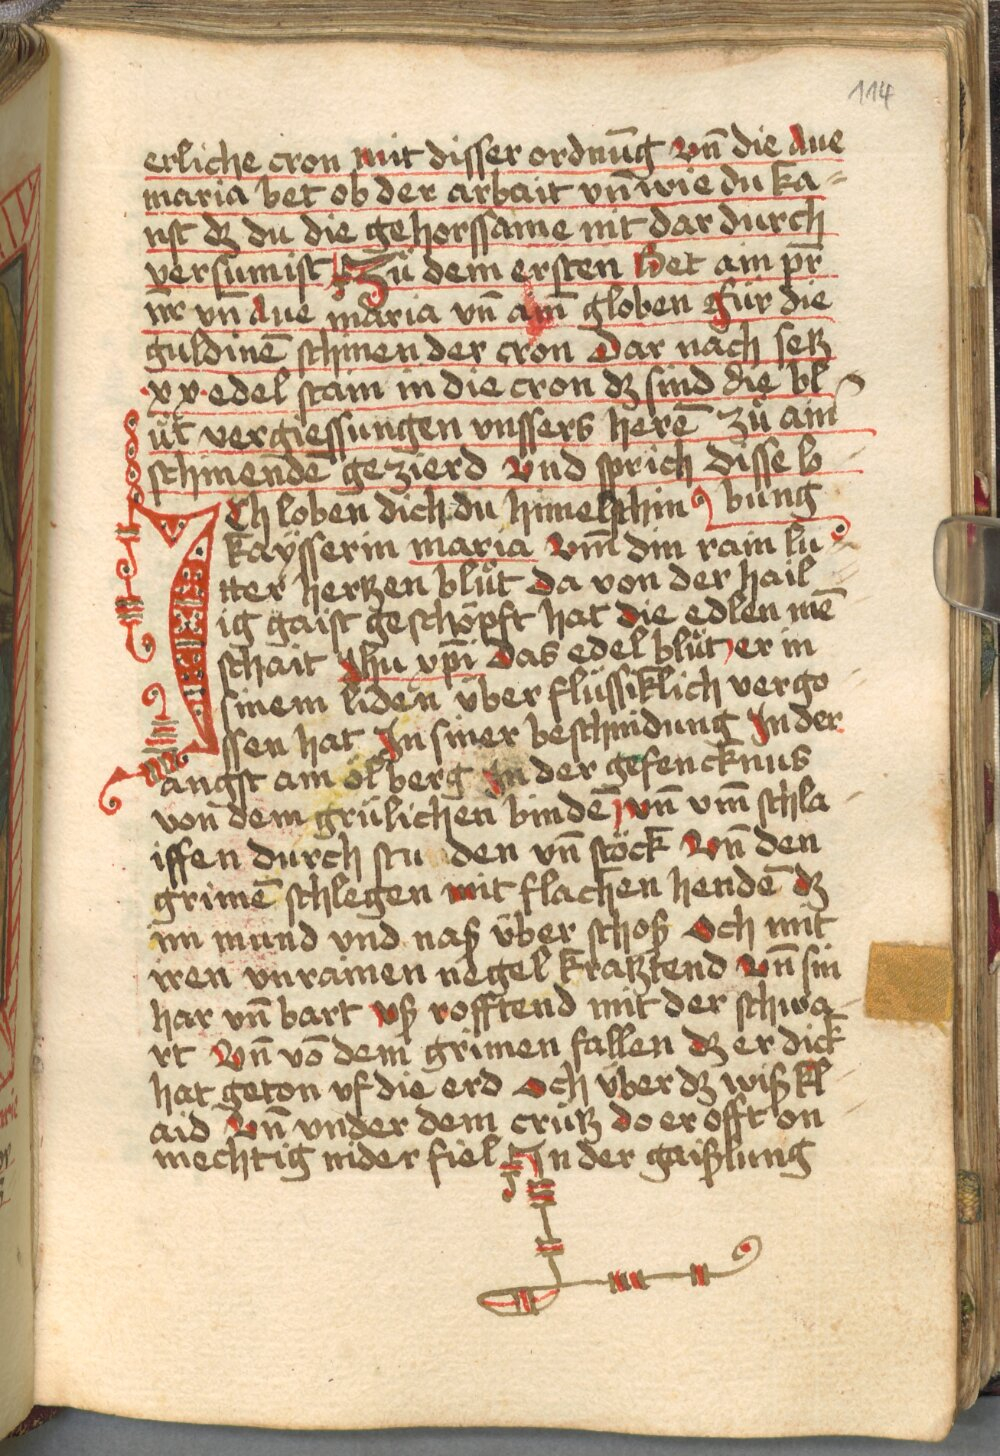 114
erliche cron mit disser ordnūg vn̄ die Aue
maria bet ob der arbait vn̄ wie du ka-
nst dz du die gehorssame nit dar durch
versumist Zů dem ersten Bet ain pr̄
nr̄ vn̄ Aue maria vn̄ ain̄ globen für die
guldinē schinen der cron Dar nach setz
xx edel stain in die cron dz sind die bl
ůt vergiessungen vnssers herē zů ain
schinendē gezierd Vnd sprich disse v
bung
Ich loben dich du himelschin
kaÿsserin maria Vm̄ din rain lu
tter hertzen blůt Da von der hail
ig gaist geschöpft hat die edlen mē
schait Jhu xp̄i Das edel blůt er in
sinem liden über flüssiklich vergo
ssen hat In siner beschnidung In der
angst am ölberg In der gefencknus
von dem grülichen bindē vn̄ vm̄ schla
iffen durch stu den vn̄ stöck Vn̄ den
grimē schlegen mit flachen hendē dz
im mund vnd naß über schoß Och mit
iren vnrainen negel kratztend Vn̄ sin
har vn̄ bart vß rofftend mit der schwa-
rt Vn̄ vō dem grimen fallen dz er dick
hat geton vf die erd Och über dz wiß kl
aid Vn̄ vnder dem crütz do er offt on
mechtig nider fiel In der gaißlung